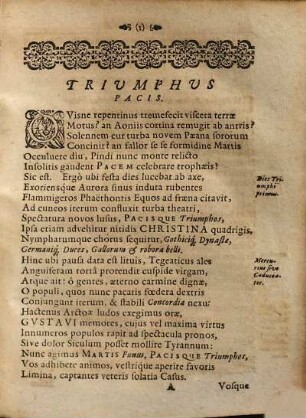 (1)
TRIUMPHUS
PACIS.
QVisne repentinus tremefecit viscera terræ
Motus? an Aoniis cortina remugit ab antris?
Solennem cur turba novem Pæana sororum
Concinit? an fallor se se formidine Martis
Occuluere diu, Pindi nunc monte relicto
Insolitis gaudent PACEM celebrare trophæis?
Sic est. Ergò ubi festa dies lucebat ab axe,
Dies Tri-
umphi
primus.
Exoriensque Aurora sinus induta rubentes
Flammigeros Phaëthontis Equos ad fræna citavit,
Ad cuneos iterum constuxit turba theatri,
Spectatura novos lusus, PACISQUE Triumphos,
Ipsa etiam advehitur nitidis CHRISTINA quadrigis,
Nympharumque chorus sequitur, Gothiciq; Dynastæ,
Germaniq; Duces, Gallorum & robora belli,
Hinc ubi pausa data est lituis, Tegeaticus ales
Mercu-
rius sive
Caducea-
tor.
Anguiferam tortâ protendit cuspide virgam,
Atque ait: ô gentes, æterno carmine dignæ,
O populi, quos nunc pacati fœdera dextri
Conjungunt iterum, & stabili Concordia nexu:
Hactenus Arctoæ ludos exegimus oræ,
GUSTAVI memores, cujus vel maxima virtus
Innumeros populos rapit ad spectacula pronos,
Sive dolor Siculum posset mollire Tyrannum:
Nunc agimus MARTIS Funus, PACISQUE Triumphos,
Vos adhibere animos, vestrique aperire favoris
Limina, captantes veteris solatia Casus.
A
Vosque